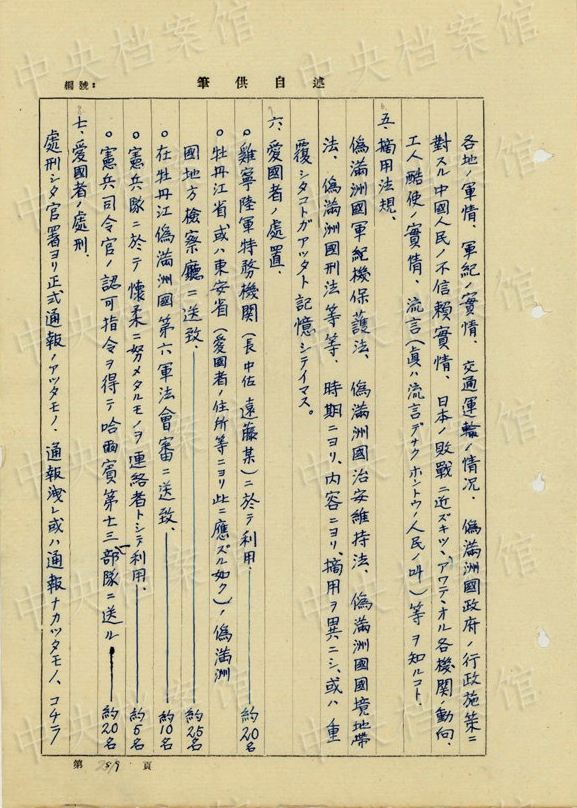 中央档案馆
編號：
筆供自述
各地ノ軍情、軍紀ノ實情、交通運輸ノ情况、偽満洲國政府ノ行政施策ニ
對スル中國人民ノ不信賴實情、日本ノ敗戰ニ近ズキツヽアワテヽオル各機関ノ動向、
工人酷使ノ實情、流言（眞ハ流言デナクホントウノ人民ノ叫）等ヲ知ルコト．
五、摘用法規、
偽満洲國軍紀機保護法、偽満洲國治安維持法、偽満洲國國境地帶
法、偽満洲國刑法等等、時期ニヨリ、内容ニヨリ、摘用ヲ異ニシ、或ハ重
覆シタコトガアツタト記憶シテイマス。
六、愛國者ノ處置．
○雞寧陸軍特務機関（長中佐遠藤某）ニ於テ利用．——約20名
○牡丹江省或ハ東安省（愛國者ノ住所等ニヨリ此ニ應ズル如ク）ノ偽満洲
國地方檢察廳ニ送致．——約25名
○在牡丹江偽満洲國第六軍法會審ニ送致．——約10名
○憲兵隊ニ於テ懷柔ニ努メタルモノヲ連絡者トシテ利用．——約5名
○憲兵司令官ノ認可指令ヲ得テ哈爾賓第十三部隊ニ送ル——約20名
七、愛國者ノ處刑．
處刑シタ官署ヨリ正式通報ノアツタモノ、通報洩レ或ハ通報ナカツタモノ、コチラ
第 59 頁